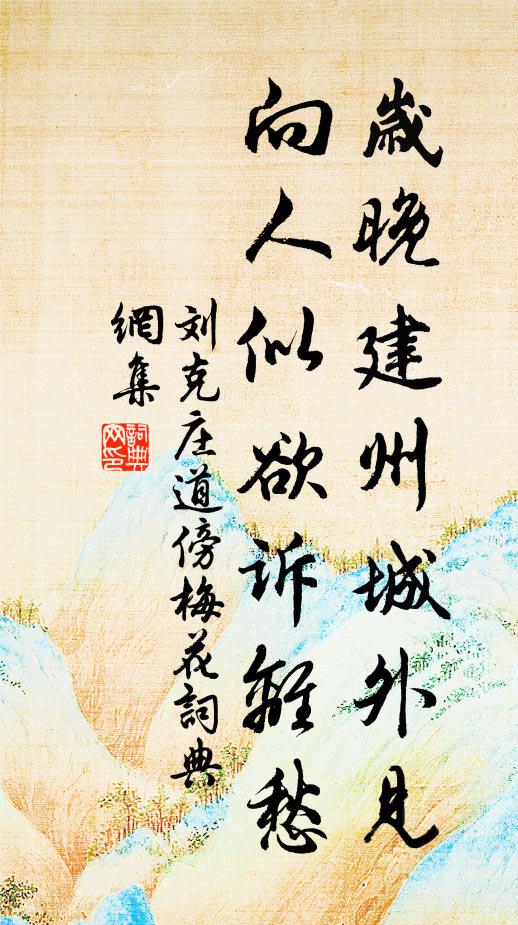 歲晚建州城外見
向人似欲诉離愁
刘克庄道傍梅花詞典
網集
詞典網印